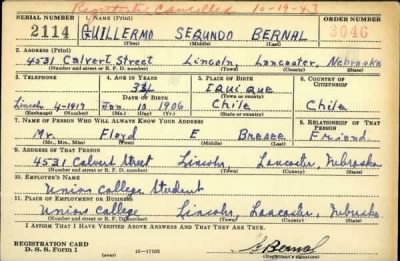 Registration Cancelled 10-19-43
SERIAL NUMBER 1. NAME (Print) ORDER NUMBER
2114 GUILLERMO SEGUNDO BERNAL 3046
(First) (Middle) (Last)
2. ADDRESS (Print)
4531 Calvert Street Lincoln, Lancaster, Nebraska
(Number and street or R. F. D. number) (Town) (County) (State)
3. TELEPHONE 4. AGE IN YEARS 5. PLACE OF BIRTH 6. COUNTRY OF CITIZENSHIP
34 IQUIQUE
DATE OF BIRTH (Town or county)
Lincoln 4-1917 Jan. 10 1906 Chile Chile
(Exchange) (Number) (Mo.) (Day) (Yr.) (State or country)
7. NAME OF PERSON WHO WILL ALWAYS KNOW YOUR ADDRESS 8. RELATIONSHIP OF THAT PERSON
Mr. Floyd E Friend
(Mr., Mrs., Miss) (First) (Middle) (Last)
9. ADDRESS OF THAT PERSON
4531 Calvert Street Lincoln, Lancaster, Nebraska
(Number and street or R. F. D. number) (Town) (County) (State)
10. EMPLOYER'S NAME
Union College Student
11. PLACE OF EMPLOYMENT OR BUSINESS
Union College Lincoln, Lancaster, Nebraska
(Number and street or R. F. D. number) (Town) (County) (State)
I AFFIRM THAT I HAVE VERIFIED ABOVE ANSWERS AND THAT THEY ARE TRUE.
REGISTRATION CARD
D. S. S. Form 1 16-17105 G Bernal
(over) (Registrant's signature)